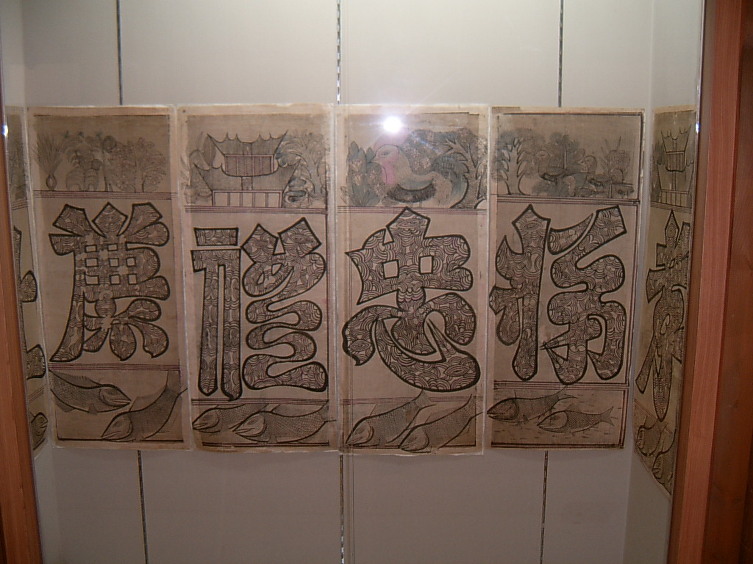 悌
忠
禮
廉